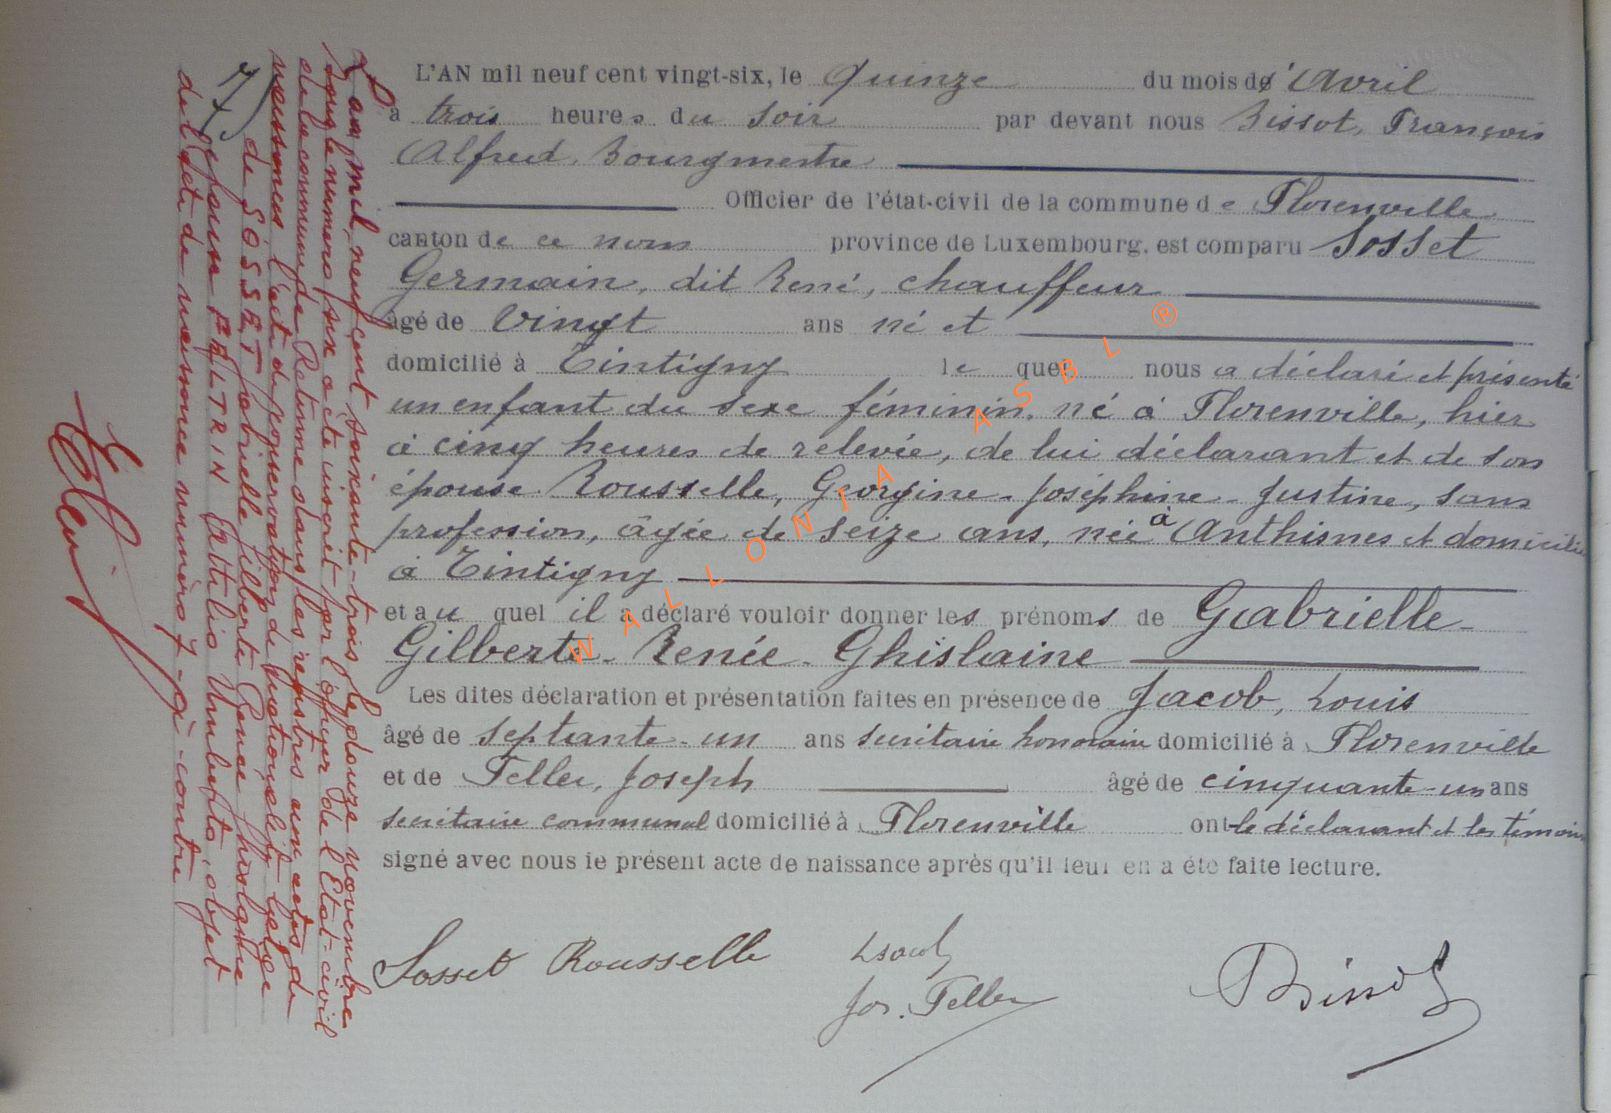 L'AN mil neuf cent vingt-six, le Quinze du mois d'Avril
à trois heures du soir par devant nous Bissot, François
Alfred, Bourgmestre
Officier de l'état-civil de la commune de Florenville
canton de ce nom province de Luxembourg, est comparu Sosset
Germain, dit René, chauffeur
âgé de Vingt ans né et
domicilié à Tintigny lequel nous a déclaré et présenté
un enfant du sexe féminin, né à Florenville, hier
à cinq heures de relevée, de lui déclarant et de son
épouse Rousselle, Georgine-Joséphine-Justine, sans
profession, âgée de seize ans, née à Anthisnes et domiciliée
à Tintigny
et au quel il a déclaré vouloir donner les prénoms de Gabrielle-
Gilberte-Renée-Ghislaine
Les dites déclaration et présentation faites en présence de Jacob, Louis
âgé de septante-un ans secrétaire honoraire domicilié à Florenville
et de Feller, Joseph âgé de cinquante-un ans
secrétaire communal domicilié à Florenville ont le déclarant et les témoins
signé avec nous le présent acte de naissance après qu'il leur en a été faite lecture.
Sosset Rousselle LJacob Bissot
Jos. Feller
L'an mil neuf cent soixante-trois, le douze novembre
sous le numéro six a été inscrit par l'officier de l'Etat-civil
de la commune de Retinne dans les registres aux actes de
naissances, l'acte de conservation de nationalité belge
7) de SOSSET Gabrielle Gilberte Renée Ghislaine
épouse Attilio Umberto, objet
de l'acte de naissance numéro 7 ci-contre
WALLONIA ASBL ®